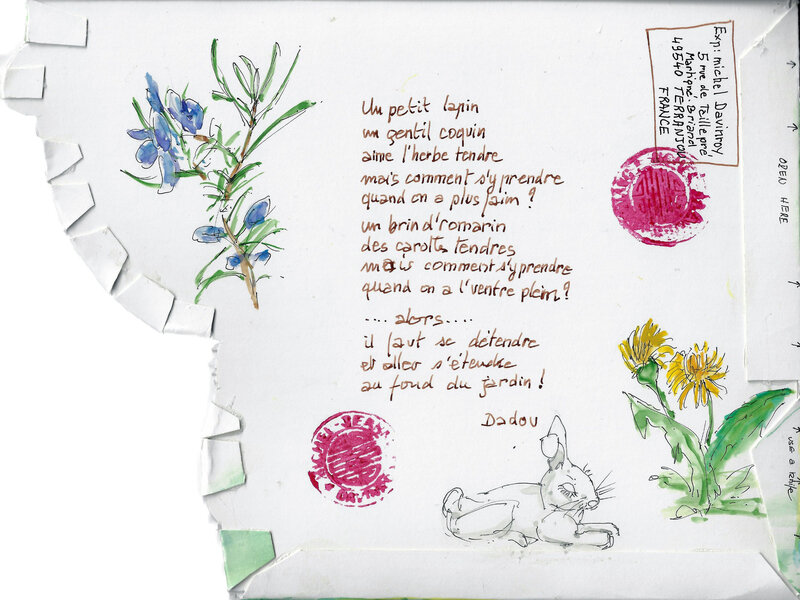 Un petit lapin
un gentil coquin
aime l'herbe tendre
mais comment s'y prendre
quand on a plus faim ?
un brin d'romarin
des carotts tendres
mais comment s'y prendre
quand on a l'ventre plein ?
.... alors ....
il faut se détendre
et aller s'étendre
au fond du jardin !
Dadou
Exp: michel Davinroy
5 rue de Taillepré,
Martigné-Briand
49540 TERRANJOU
FRANCE
OPEN HERE
use a knife